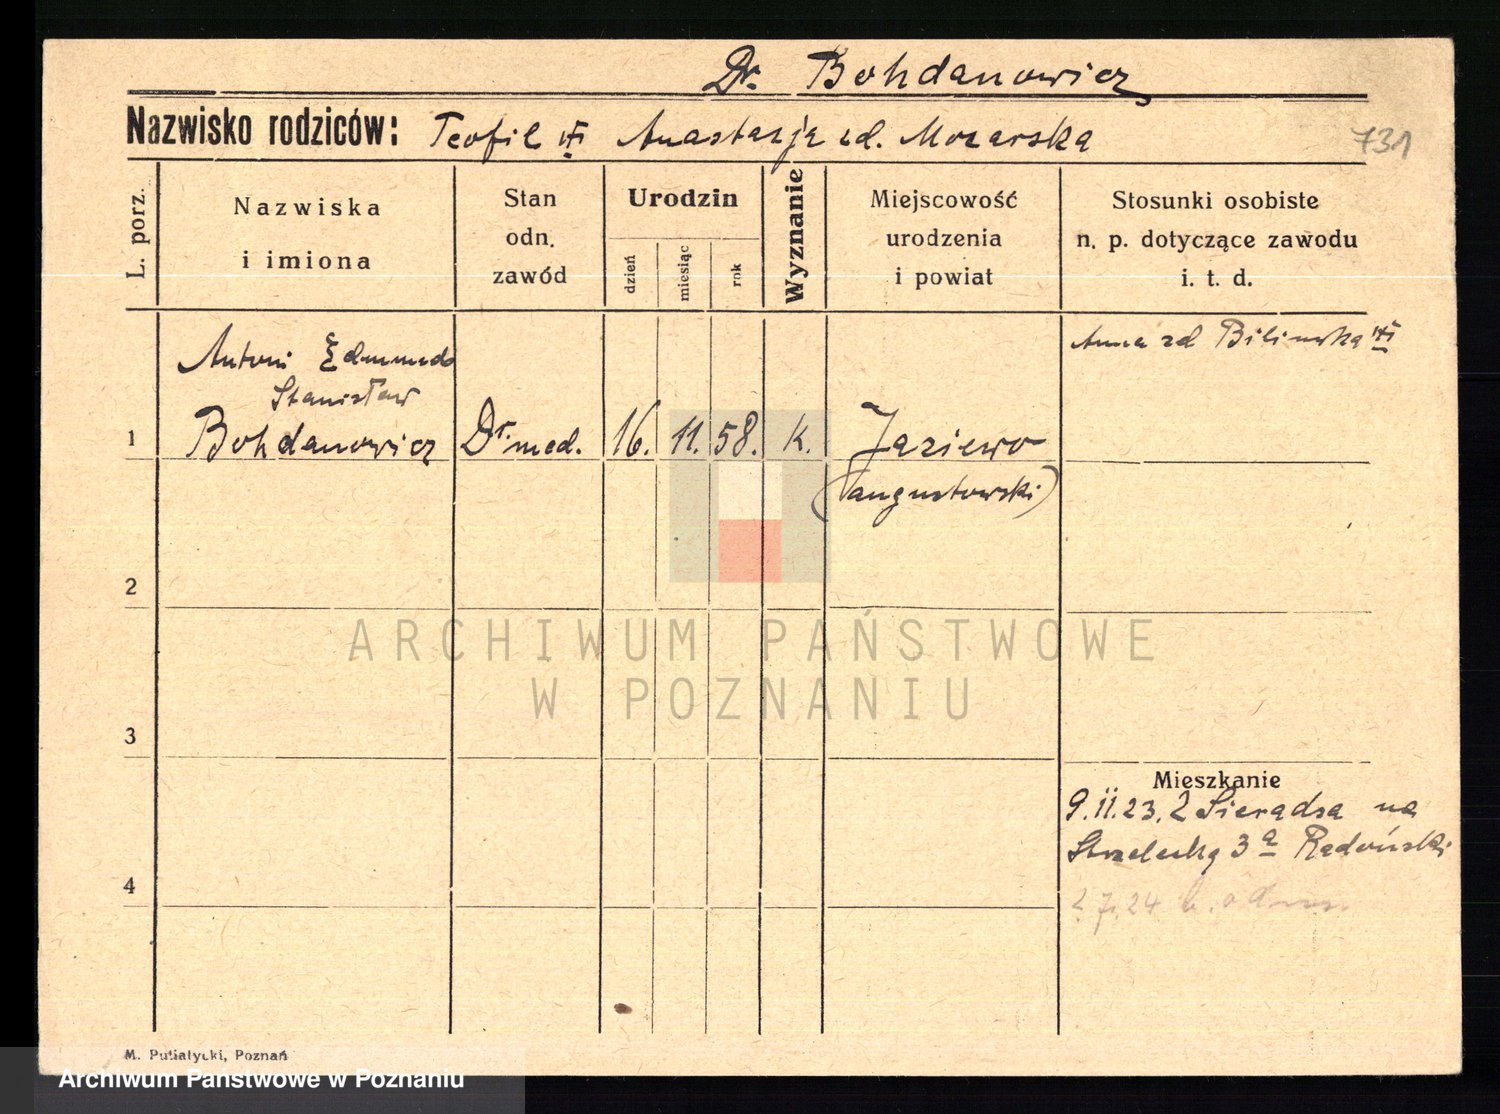 Dr. Bohdanowicz
Nazwisko rodziców: Teofil Anastazja zd. Mozarska
731
L. porz.
Nazwiska
i imiona
Stan
odn.
zawód
Urodzin
dzień
miesiąc
rok
Wyznanie
Miejscowość
urodzenia
i powiat
Stosunki osobiste
n. p. dotyczące zawodu
i. t. d.
Anna zd Bilinska
Antoni Edmund
Stanisław
1 Bohdanowicz Dr. med. 16. 11. 58. k. Jaziewo
(augustowski)
2
ARCHIWUM PAŃSTWOWE
W POZNANIU
3
Mieszkanie
9.II.23. z Sieradza na
Strzelecką 3a Radoński
4
2.7.24
M. Putiatycki, Poznań
Archiwum Państwowe w Poznaniu